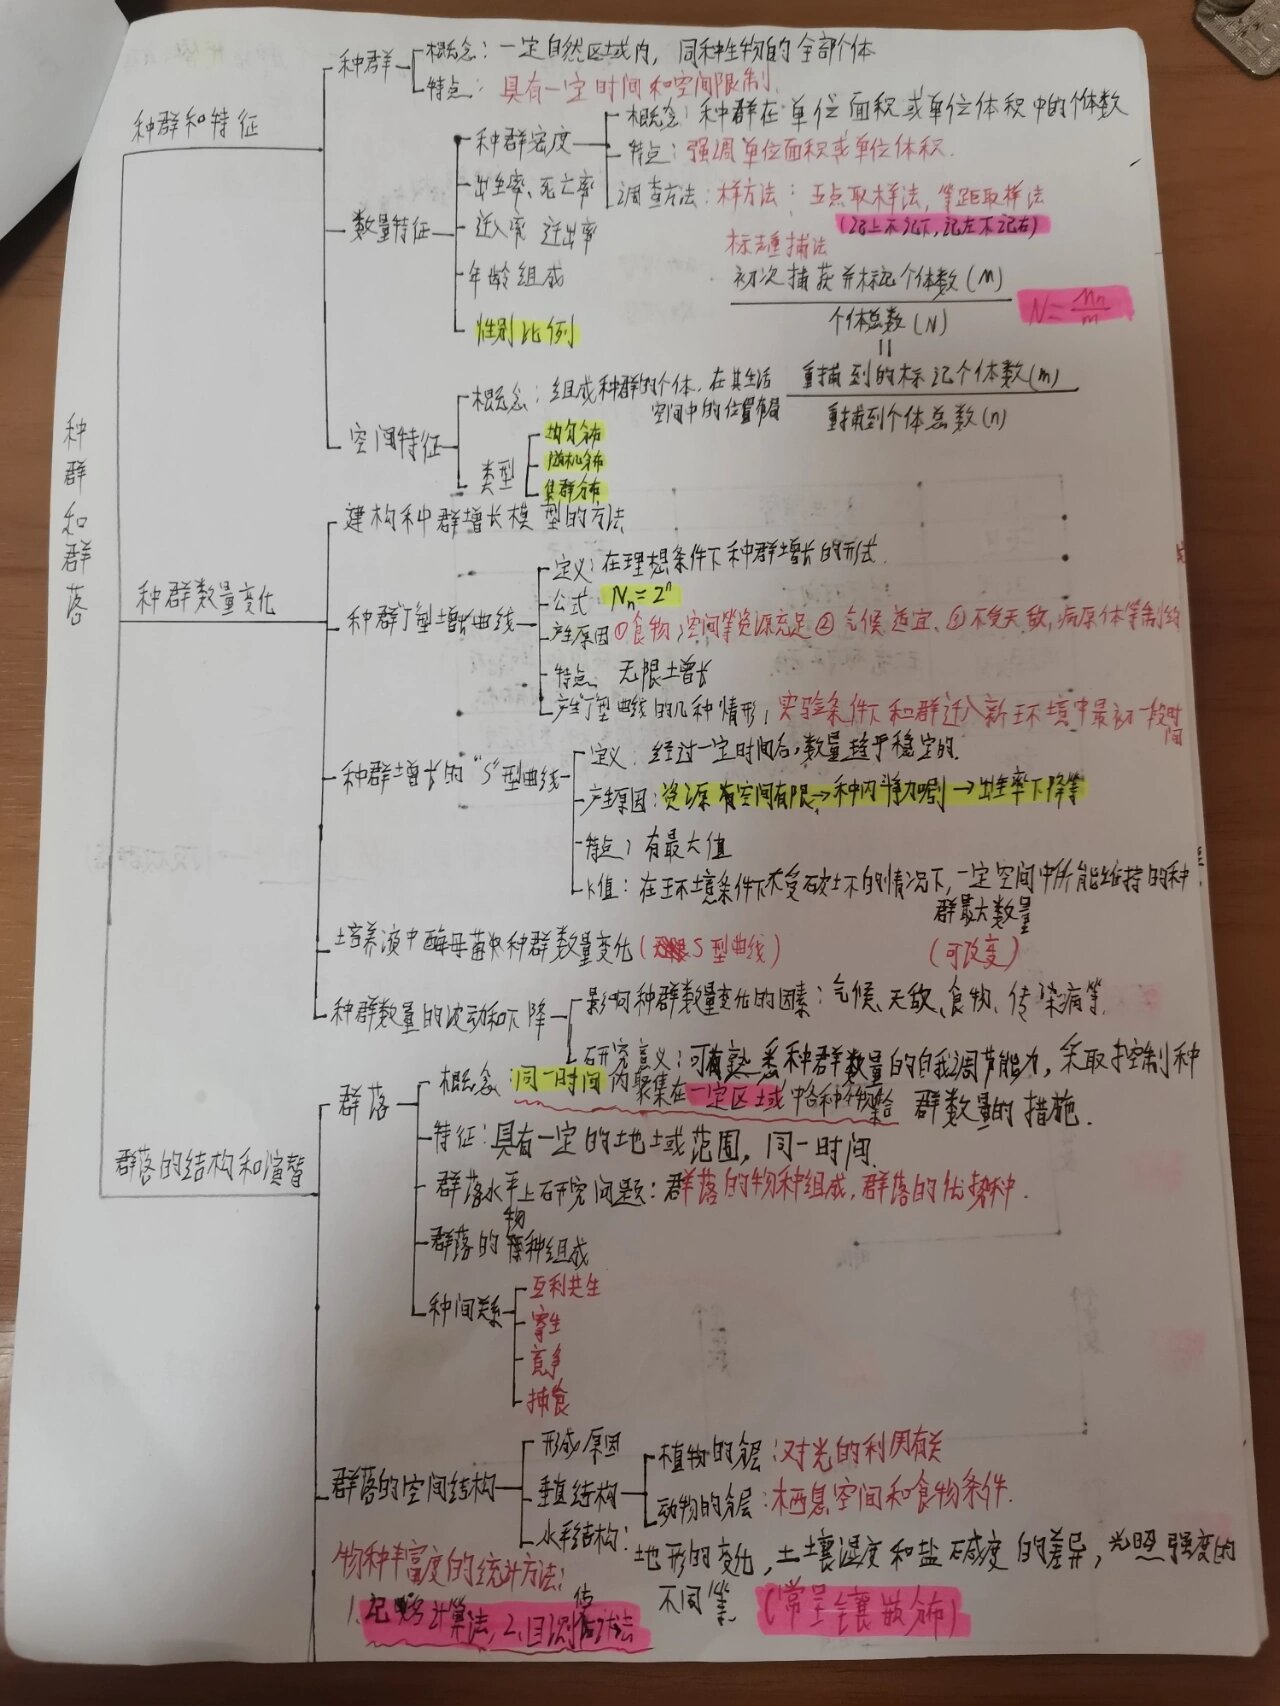 种群和群落
种群和特征
种群
概念：一定自然区域内，同种生物的全部个体
特点：具有一定时间和空间限制.
数量特征
种群密度
概念：种群在单位面积或单位体积中的个体数
特点：强调单位面积或单位体积.
调查方法：样方法：五点取样法，等距取样法
(记上不记下，记左不记右)
标志重捕法
初次捕获并标记个体数(M)
个体总数(N)
=
重捕到的标记个体数(m)
重捕到个体总数(n)
N=Mn/m
出生率、死亡率
迁入率 迁出率
年龄组成
性别比例
空间特征
概念：组成种群的个体，在其生活
空间中的位置布局
类型
均匀分布
随机分布
集群分布
种群数量变化
建构种群增长模型的方法
种群"J"型增长曲线
定义：在理想条件下种群增长的形式.
公式：Nn=2ⁿ
产生原因①食物，空间等资源充足②气候适宜、③不受天敌，病原体等制约
特点 无限增长
产生"J"型曲线的几种情形；实验条件下和群迁入新环境中最初一段时
间
种群增长的"S"型曲线
定义：经过一定时间后，数量趋于稳定的.
产生原因：资源 空间有限→种内斗争加剧→出生率下降等
特点；有最大值
K值：在环境条件下不受破坏的情况下，一定空间中所能维持的种
群最大数量
(可改变)
培养液中酵母菌 种群数量变化(S型曲线)
种群数量的波动和下降
影响种群数量变化的因素：气候、天敌、食物、传染病等.
研究意义：可 熟悉种群数量的自我调节能力，采取控制种
群数量的措施.
群落的结构和演替
群落
概念：同一时间内聚集在一定区域中各种 集合
特征：具有一定的地域范围，同一时间.
群落水平上研究问题：群落的物种组成，群落的优势种.
群落的物种组成
种间关系
互利共生
寄生
竞争
捕食
群落的空间结构
形成原因
垂直结构
植物的分层：对光的利用有关
动物的分层：栖息空间和食物条件.
水平结构：地形的变化，土壤湿度和盐碱度的差异，光照强度的
不同等 (常呈镶嵌分布)
物种丰富度的统计方法：
1、记名计算法，2、目测估计法